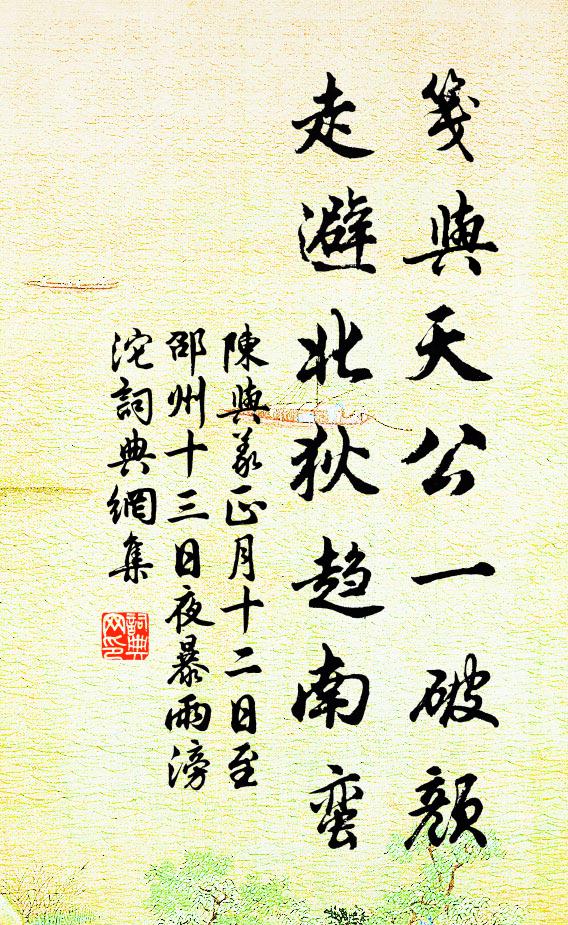 箋與天公一破顏
走避北狄趋南蛮
陳與義正月十二日至
邵州十三日夜暴雨滂
沱詞典網集
詞典网印